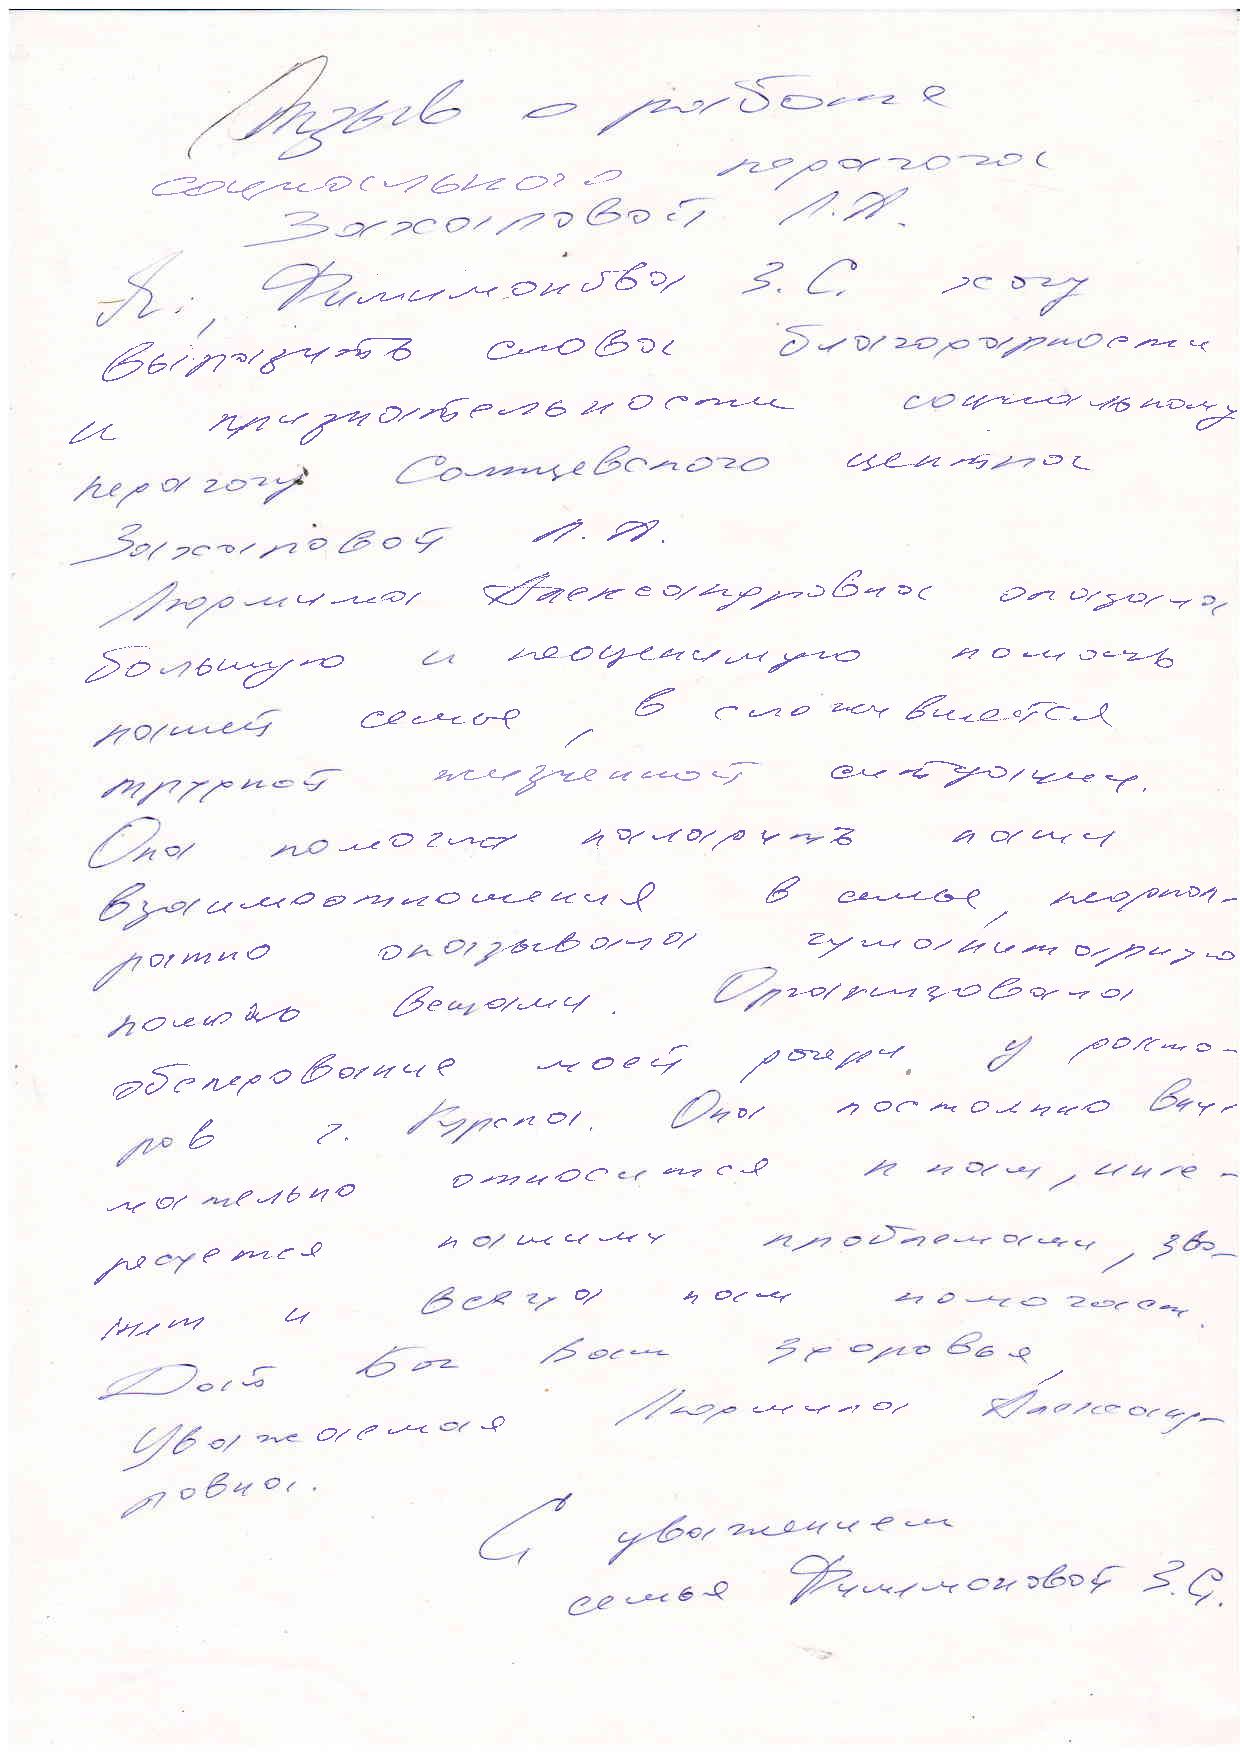 Отзыв о работе
социального педагога
Захаровой Л.А.
Я, Филимонова З.С. хочу
выразить слова благодарности
и признательности социальному
педагогу Солнцевского центра
Захаровой Л.А.
Людмила Александровна оказала
большую и неоценимую помощь
нашей семье, в сложившейся
трудной жизненной ситуации.
Она помогла наладить наши
взаимоотношения в семье, неоднок-
ратно оказывала гуманитарную
помощь вещами. Организовала
обследование моей дочери у докто-
ров г. Курска. Она постоянно вни-
мательно относится к нам, инте-
ресуется нашими проблемами, зво-
нит и всегда нам помогает.
Дай Бог Вам здоровья,
Уважаемая Людмила Александ-
ровна.
С уважением
семья Филимоновой З.С.